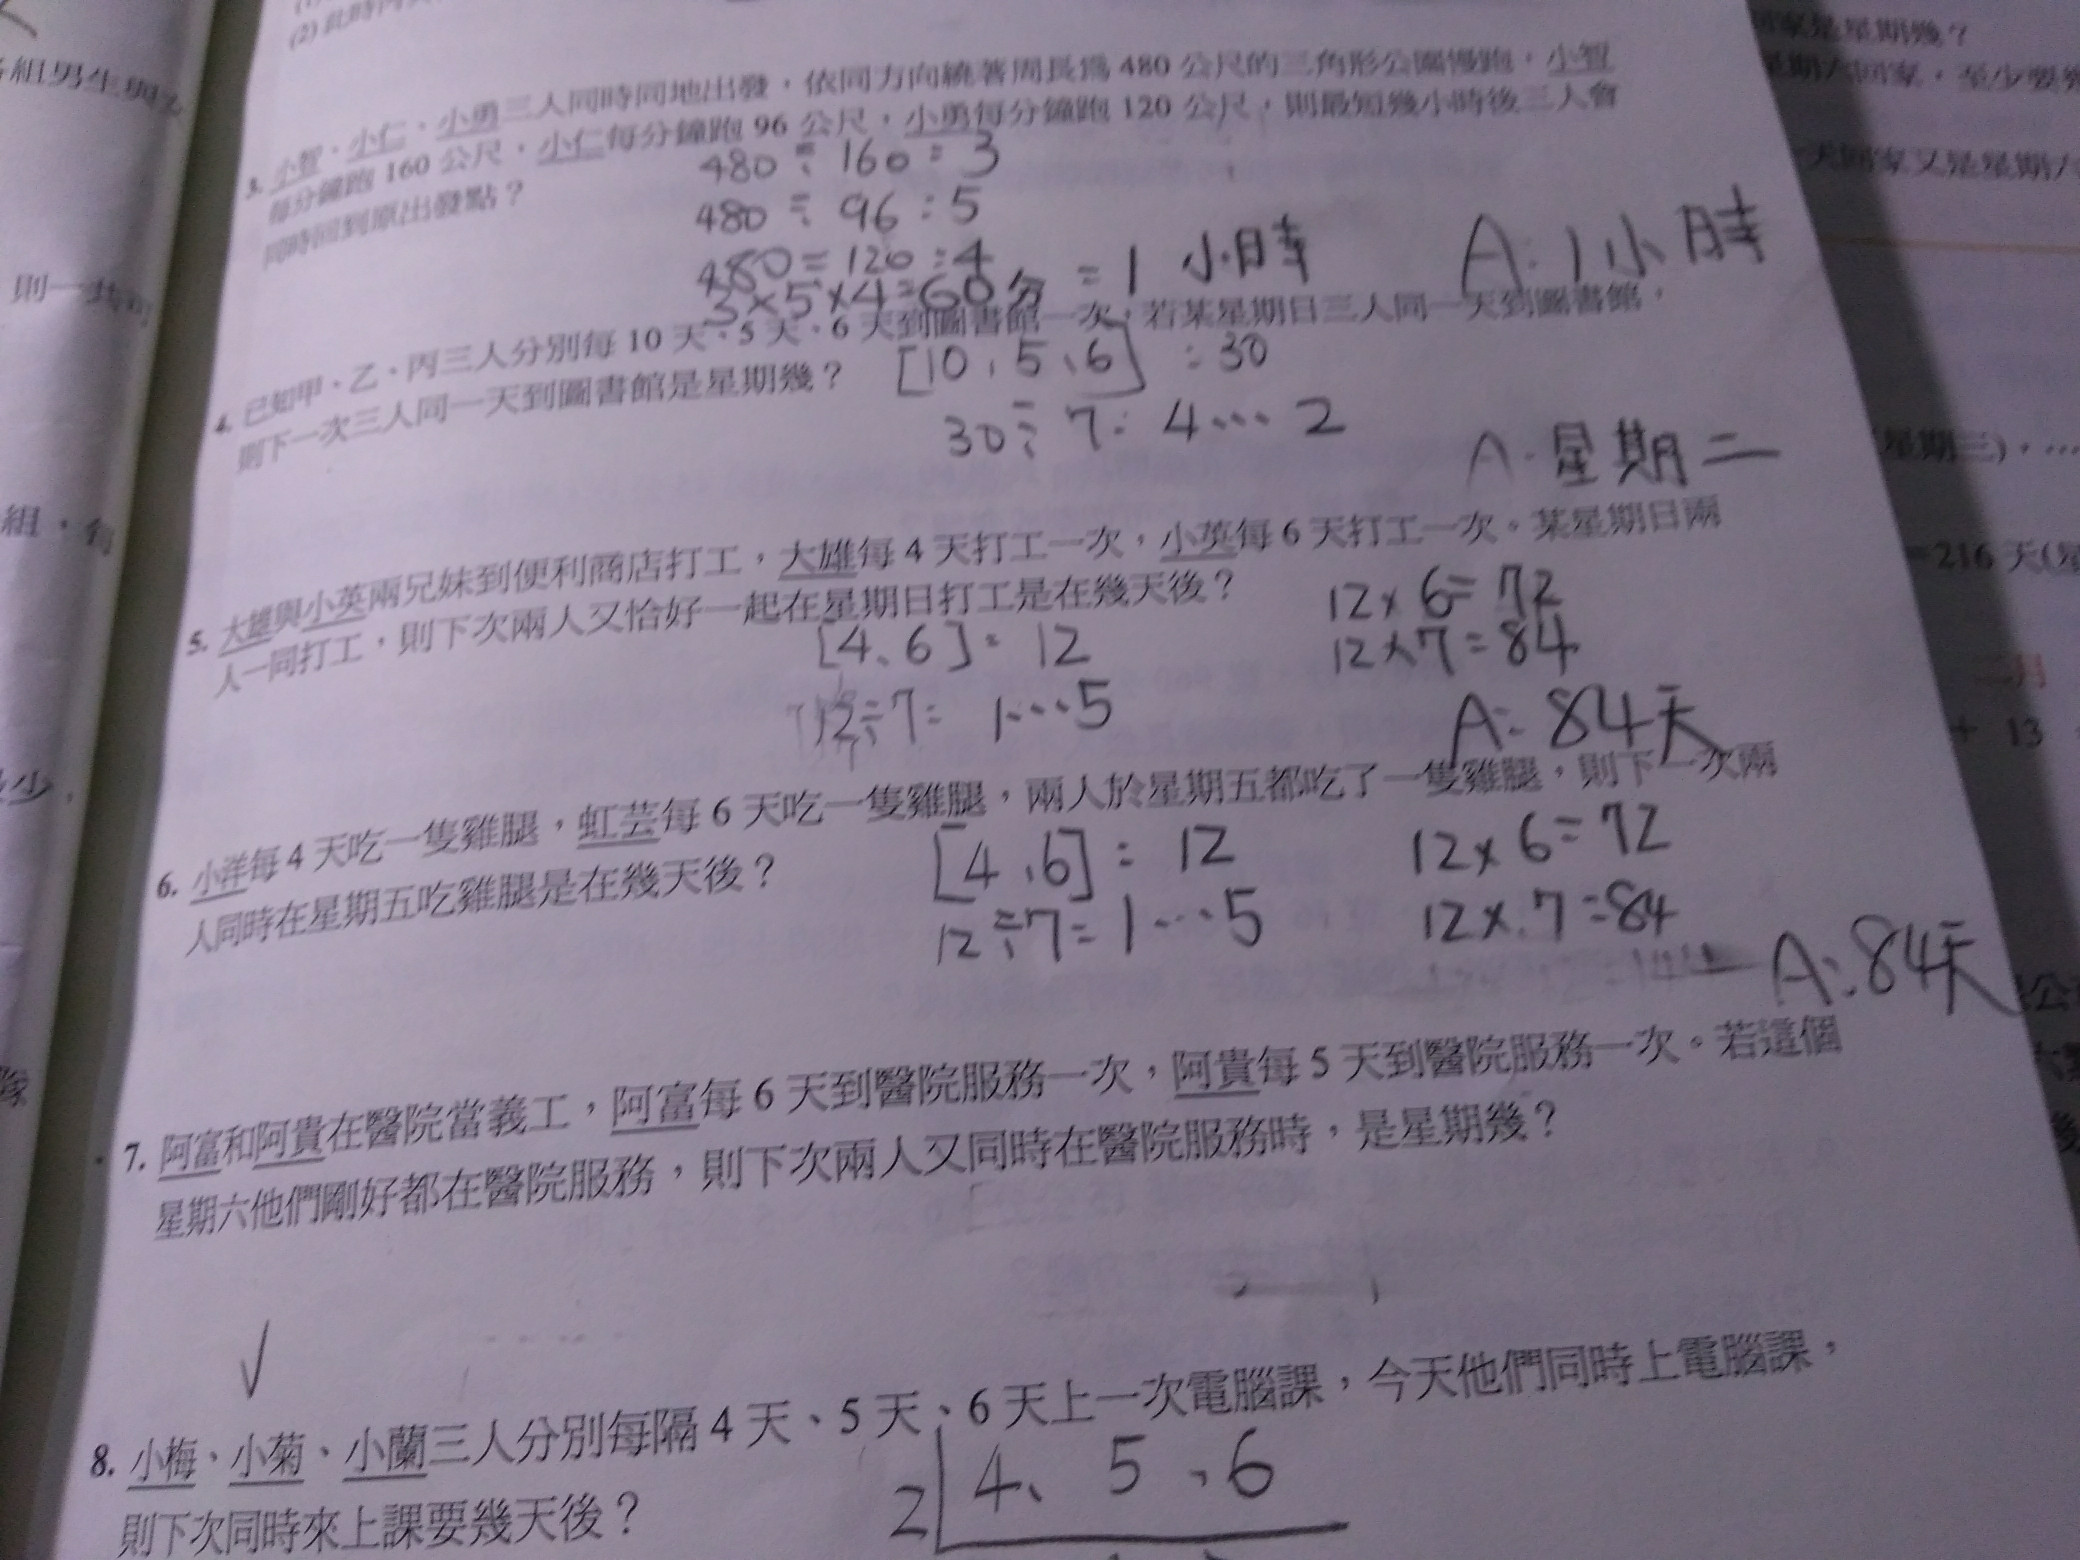 組男生與
則一共可
組，每
少，
隊
(2)此時
3. 小智、小仁、小勇三人同時同地出發，依同方向繞著周長為 480 公尺的三角形公園慢跑，小智
每分鐘跑 160 公尺，小仁每分鐘跑 96 公尺，小勇每分鐘跑 120 公尺，則最短幾小時後三人會
同時回到原出發點？
480 ÷ 160 = 3
480 ÷ 96 = 5
480 ÷ 120 = 4
3×5×4=60分 = 1 小時
A: 1小時
4. 已知甲、乙、丙三人分別每 10 天、5 天、6 天到圖書館一次，若某星期日三人同一天到圖書館，
則下一次三人同一天到圖書館是星期幾？
[10、5、6] = 30
30÷7= 4…2
A: 星期二
5. 大雄與小英兩兄妹到便利商店打工，大雄每 4 天打工一次，小英每 6 天打工一次。某星期日兩
人一同打工，則下次兩人又恰好一起在星期日打工是在幾天後？
[4、6]= 12
12÷7= 1…5
12×6=72
12×7=84
A: 84天
6. 小洋每 4 天吃一隻雞腿，虹芸每 6 天吃一隻雞腿，兩人於星期五都吃了一隻雞腿，則下一次兩
人同時在星期五吃雞腿是在幾天後？
[4、6]= 12
12÷7=1…5
12×6=72
12×7=84
A: 84天
7. 阿富和阿貴在醫院當義工，阿富每 6 天到醫院服務一次，阿貴每 5 天到醫院服務一次。若這個
星期六他們剛好都在醫院服務，則下次兩人又同時在醫院服務時，是星期幾？
8. 小梅、小菊、小蘭三人分別每隔 4 天、5 天、6 天上一次電腦課，今天他們同時上電腦課，
則下次同時來上課要幾天後？
2 4、5、6
家是星期幾？
星期六回家，至少要
天回家又是星期六
星期三)，…
=216 天(星
二月
+ 13